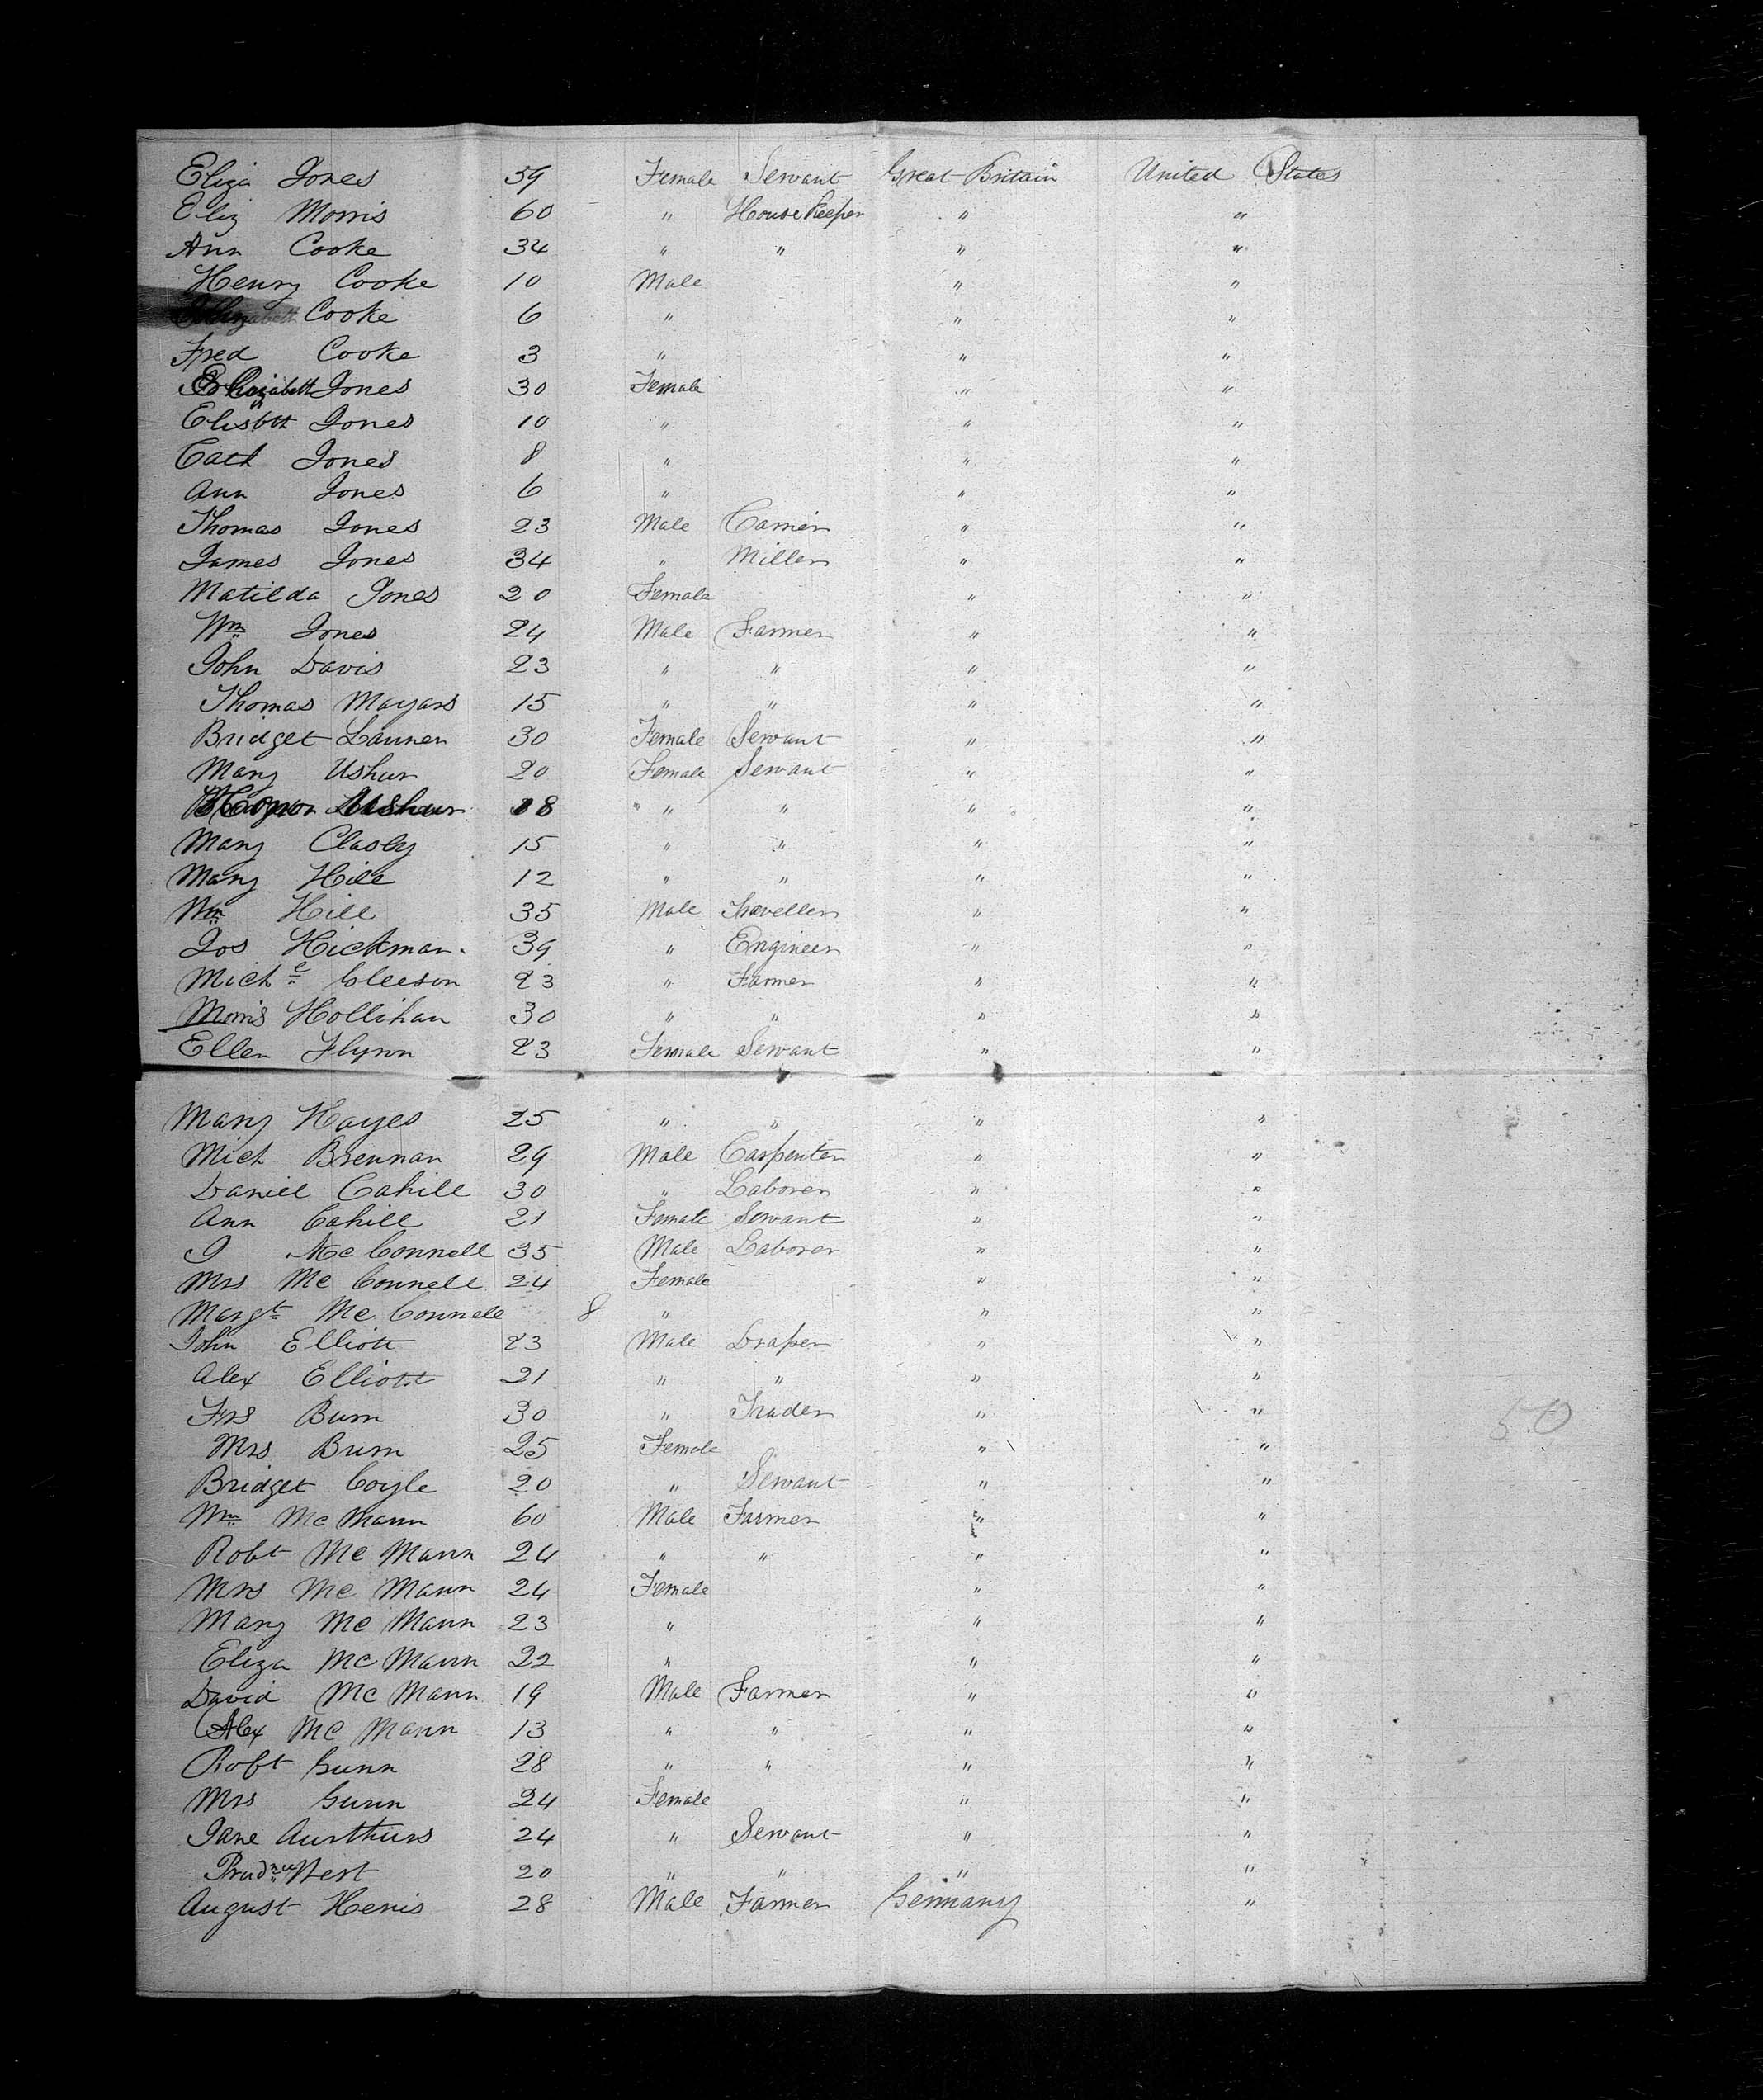 Eliza Jones 39 Female Servant Great Britain United States
Eliz Morris 60 " House Keeper " "
Ann Cooke 34 " " " "
Henry Cooke 10 Male " "
Cooke 6 " " "
Fred Cooke 3 " " "
Elizabeth Jones 30 Female " "
Elisbth Jones 10 " " "
Cath Jones 8 " " "
Ann Jones 6 " " "
Thomas Jones 23 Male Carrier " "
James Jones 34 " Miller " "
Matilda Jones 20 Female " "
Wm Jones 24 Male Farmer " "
John Davis 23 " " " "
Thomas Mayars 15 " " " "
Bridget Launen 30 Female Servant " "
Mary Ushur 20 Female Servant " "
18 " " " "
Mary Clasby 15 " " " "
Mary Hill 12 " " " "
Wm Hill 35 Male Traveller " "
Jos Hickman 39 " Engineer " "
Michl Gleeson 23 " Farmer " "
Morris Hollihan 30 " " " "
Ellen Flynn 23 Female Servant " "
Mary Hayes 25 " " " "
Mich Brennan 29 Male Carpenter " "
Daniel Cahill 30 " Laborer " "
Ann Cahill 21 Female Servant " "
J McConnell 35 Male Laborer " "
Mrs McConnell 24 Female " "
Margt McConnell 8 " " "
John Elliott 23 Male Draper " "
Alex Elliott 21 " " " "
Frs Burn 30 " Trader " "
Mrs Burn 25 Female " "
50
Bridget Coyle 20 " Servant " "
Wm McMann 60 Male Farmer " "
Robt McMann 24 " " " "
Mrs McMann 24 Female " "
Mary McMann 23 " " "
Eliza McMann 22 " " "
David McMann 19 Male Farmer " "
Alex McMann 13 " " " "
Robt Gunn 28 " " " "
Mrs Gunn 24 Female " "
Jane Aurthurs 24 " Servant " "
Prudnce West 20 " " " "
August Henis 28 Male Farmer Germany "